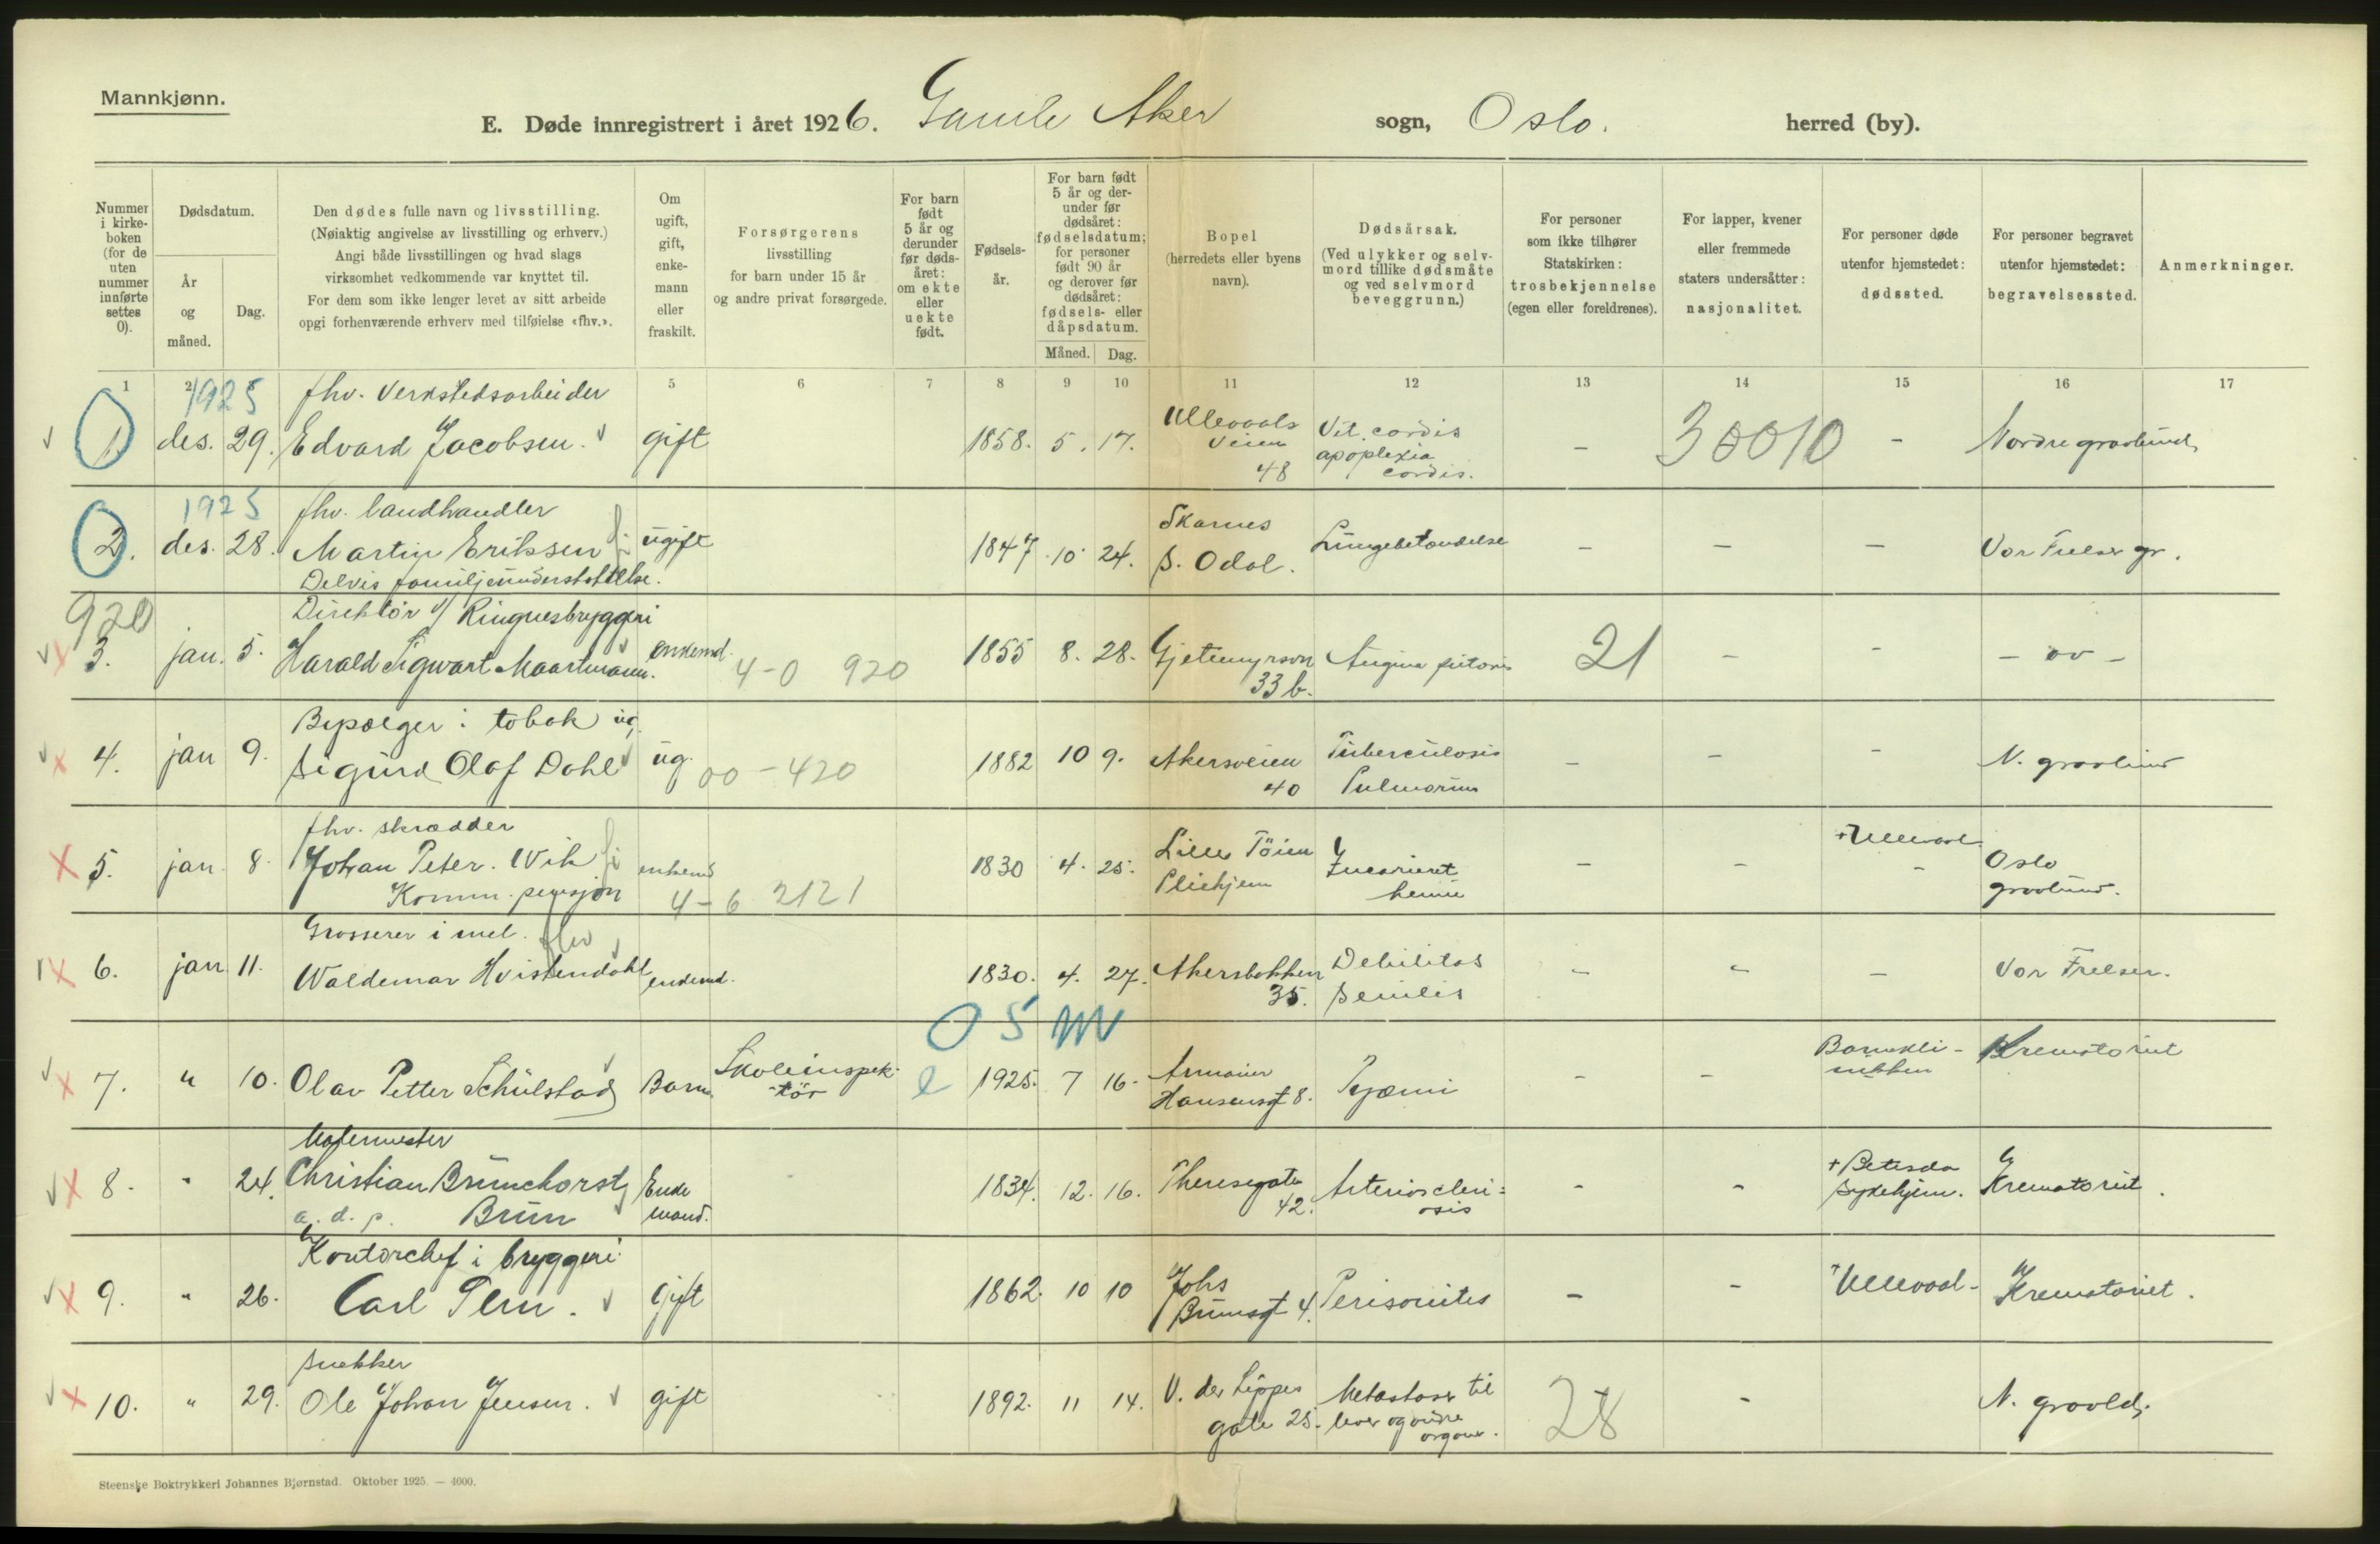 Mannkjønn.
E. Døde innregistrert i året 1926. Gamle Aker sogn, Oslo. herred (by).
Nummer i kirke-boken (for de uten nummer innførte settes 0).
Dødsdatum.
År og måned.
Dag.
Den dødes fulle navn og livsstilling.
(Nøiaktig angivelse av livsstilling og erhverv.)
Angi både livsstillingen og hvad slags
virksomhet vedkommende var knyttet til.
For dem som ikke lenger levet av sitt arbeide
opgi forhenværende erhverv med tilføielse «fhv.».
Om ugift, gift, enke-mann eller fraskilt.
Forsørgerens
livsstilling
for barn under 15 år
og andre privat forsørgede.
For barn født 5 år og derunder før døds-året: om ekte eller uekte født.
Fødsels-år.
For barn født 5 år og der-under før dødsåret: fødselsdatum; for personer født 90 år og derover før dødsåret: fødsels- eller dåpsdatum.
Måned. Dag.
Bopel
(herredets eller byens
navn).
Dødsårsak.
(Ved ulykker og selv-
mord tillike dødsmåte
og ved selvmord
beveggrunn.)
For personer
som ikke tilhører
Statskirken:
trosbekjennelse
(egen eller foreldrenes).
For lapper, kvener
eller fremmede
staters undersåtter:
nasjonalitet.
For personer døde
utenfor hjemstedet:
dødssted.
For personer begravet
utenfor hjemstedet:
begravelsessted.
Anmerkninger.
1 2 3 5 6 7 8 9 10 11 12 13 14 15 16 17
1925 fhv. Verkstedsarbeider
1. des. 29. Edvard Jacobsen. gift 1858. 5. 17. Ullevaals veien 48 Vit. cordis apoplexia cordis. - 30010 - Nordre gravlund
1925 fhv. landhandler
2. des. 28. Martin Eriksen ugift 1847 10 24. Skarnes S. Odal. Lungebetændelse - - - Vor Frelser gr.
Delvis familjeunderstøttelse.
920 Direktør v/ Ringnesbryggeri
3. jan. 5. Harald Sigwart Maartmann. enkemd. 4-0 920 1855 8. 28. Gjetemyrsvn 33 b. Angina pectoris 21 - - - " -
Bipælger i tobak
4. jan 9. Sigurd Olaf Dahl ug. 00-420 1882 10 9. Akersveien 40 Tuberculosis Pulmorum - - - N. gravlund
fhv. skrædder
5. jan 8. Johan Peter. Wik enkemd 4-6 2121 1830 4. 25. Lille Tøien Pleiehjem - - + Ullevaal - Oslo gravlund.
Komm. pensjon
Grosserer i mel. fhv
6. jan 11. Waldemar Hvistendahl enkemd. 1830. 4. 27. Akersbakken 35. Debilitas Senilis - - - Vor Frelser.
0 5 m
7. " 10. Olav Petter Schulstad Barn Skoleinspek-tør e 1925. 7 16. Armauer Hansensgt 8. Pyæmi - - Barnekli-nikken Krematoriet
8. " 24. Christian Brunchorst Enke mand. 1834. 12. 16. Theresegate 42. Arterioscleri=osis - - + Betesda Sykehjem. Krematoriet.
a. d. p. Brun
Kontorchef i bryggeri
9. " 26. Carl Gift 1862. 10 10 Johs Brunsgt 4. - - + Ullevaal - Krematoriet.
snekker
10. " 29. Ole Johan Jensen. gift 1892. 11 14. V. der Lippes gate 25. Metastaser til lever og andre organer. 28 - N. gravld.
Steenske Boktrykkeri Johannes Bjørnstad. Oktober 1925. — 4000.